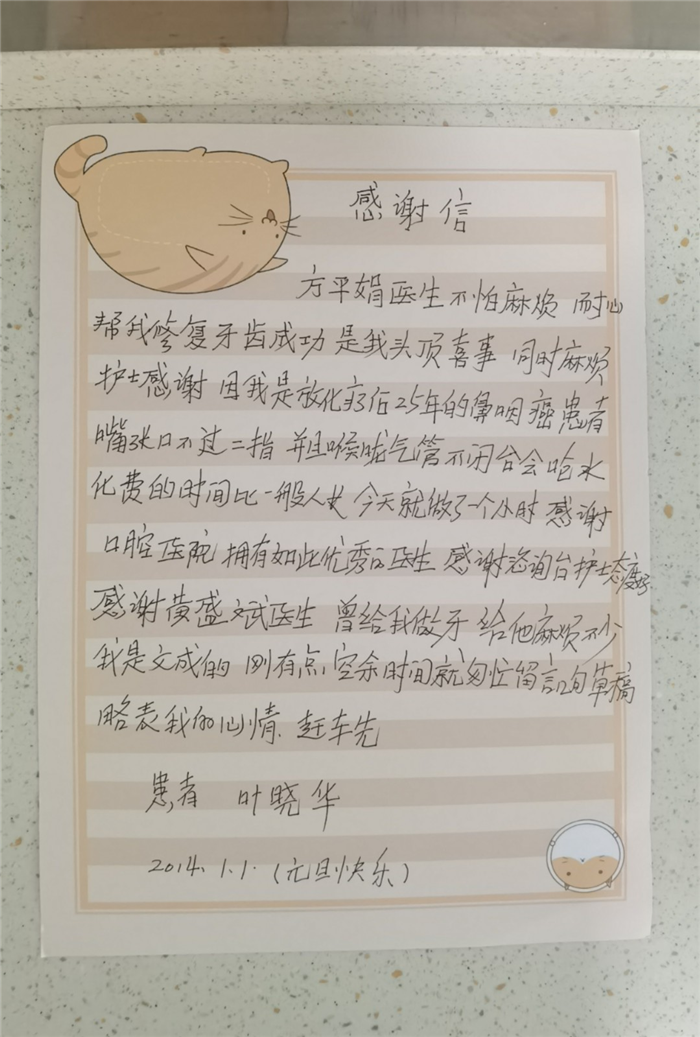 感谢信
方平娟医生不怕麻烦 耐心
帮我修复牙齿成功 是我头顶喜事 同时麻烦
护士感谢 因我是放化疗后25年的鼻咽癌患者
嘴张口不过二指 并且喉咙气管不闭合会呛水
化费的时间比一般人长 今天就做了一个小时 感谢
口腔医院 拥有如此优秀的医生 感谢咨询台护士态度好
感谢黄盛斌医生 曾给我做牙 给他麻烦不少
我是文成的 刚有点空余时间就匆忙留言几句草稿
略表我的心情. 赶车先
患者 叶晓华
2014.1.1.(元旦快乐)